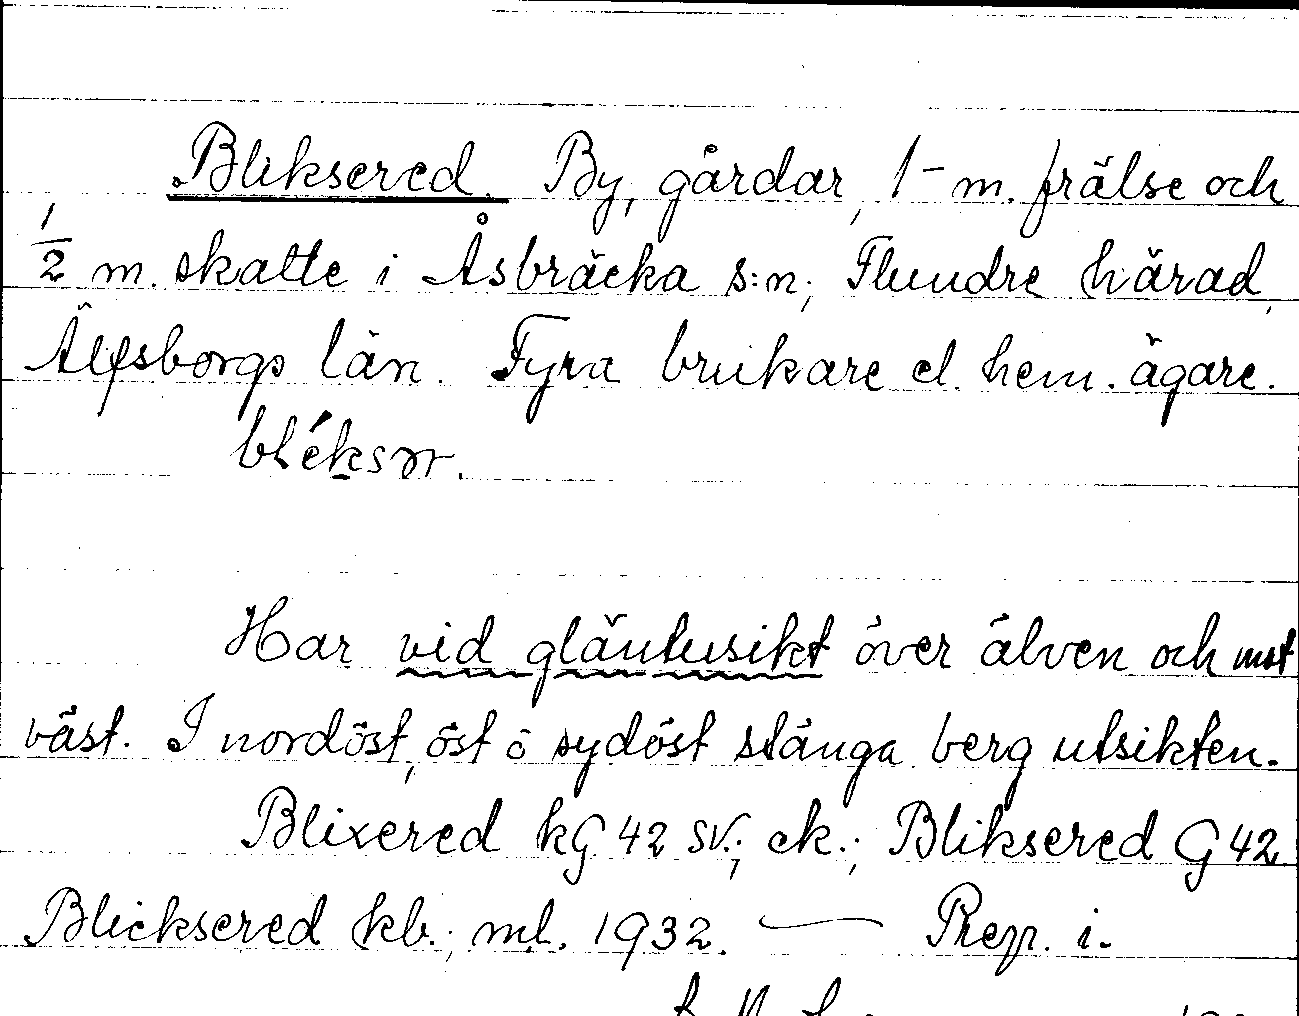 Bliksered. By, gårdar, 1 - m. frälse och
1/2 m. skatte i Åsbräcka s:n, Flundre härad,
Älfsborgs län. Fyra brukare el. hem. ägare.
Har vid gläntusikt över älven och mot
väst. I nordöst, öst o sydöst stänga berg utsikten.
Blixered kG 42 SV.; ek.; Bliksered G 42
Blicksered kb.; ml. 1932. — Repr. i.